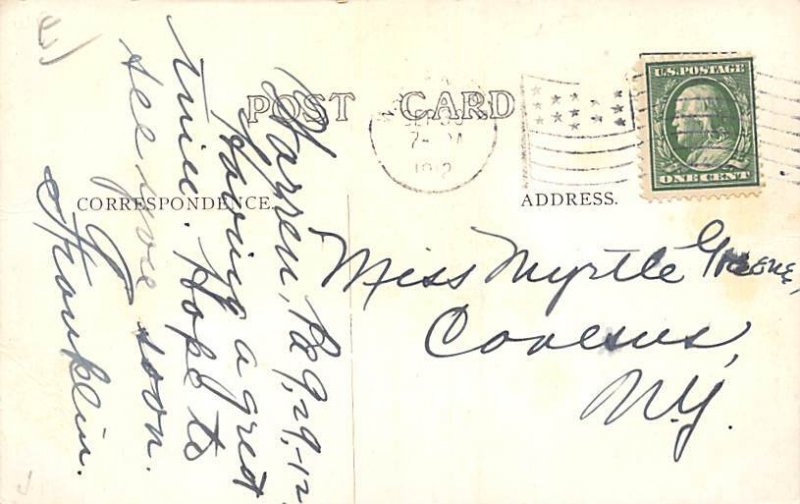 POST CARD
CORRESPONDENCE.
ADDRESS.
U.S. POSTAGE
ONE CENT
7-
1912
Warren, Pa 9,29,-12
Having a great
time. Hope to
see you soon.
Franklin.
Miss Myrtle Greene,
Conesus,
N.Y.